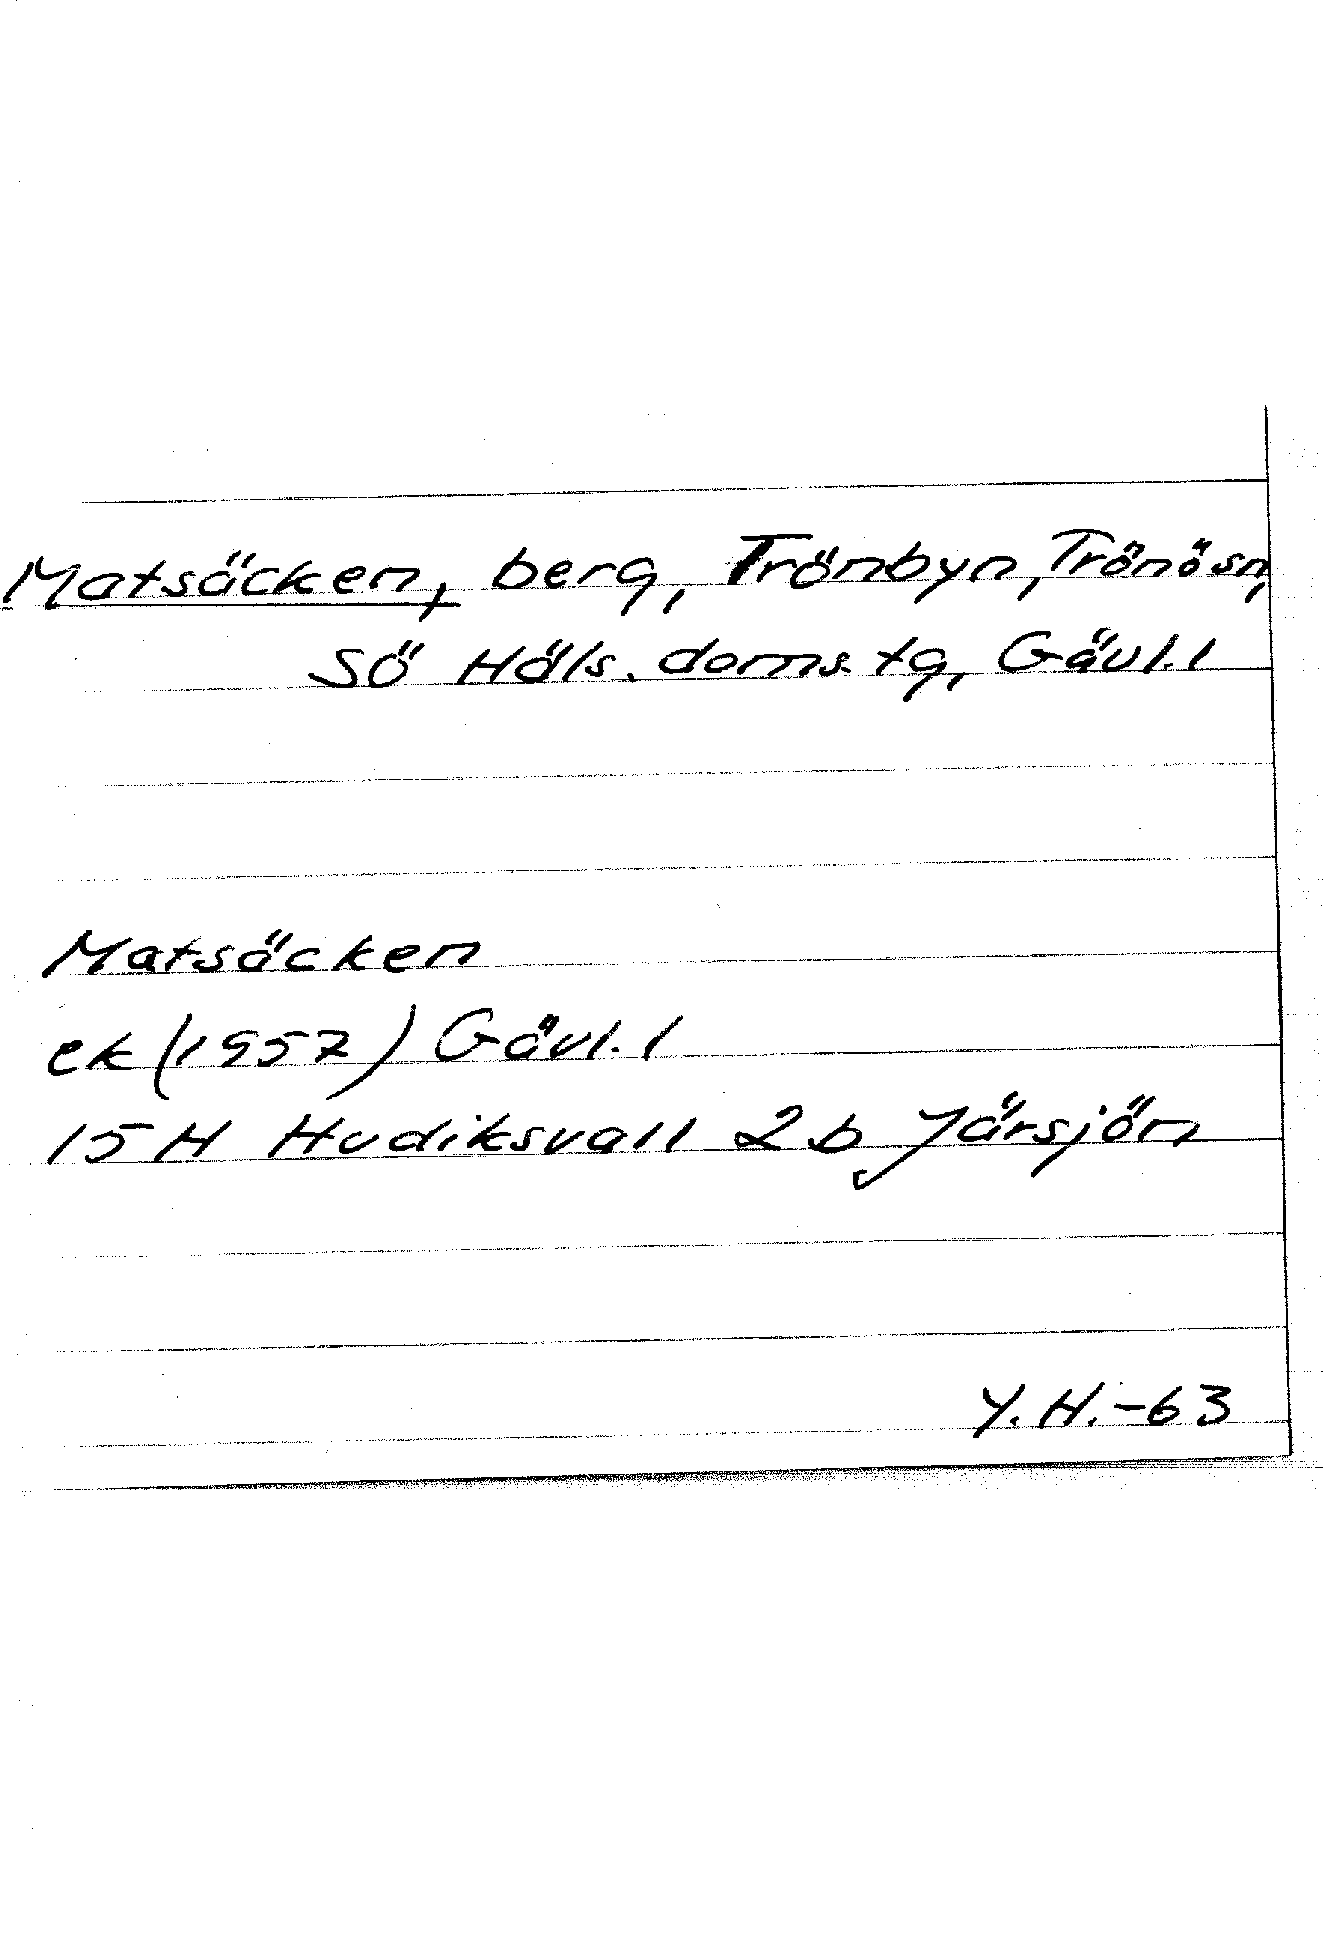 Matsäcken, berg, Trönbyn, Trönösn,
Sö Häls. doms.tg, Gävl.l
Matsäcken
ek (1957) Gävl. l
15 H Hudiksvall 2 b Järsjön
Y. H. -63